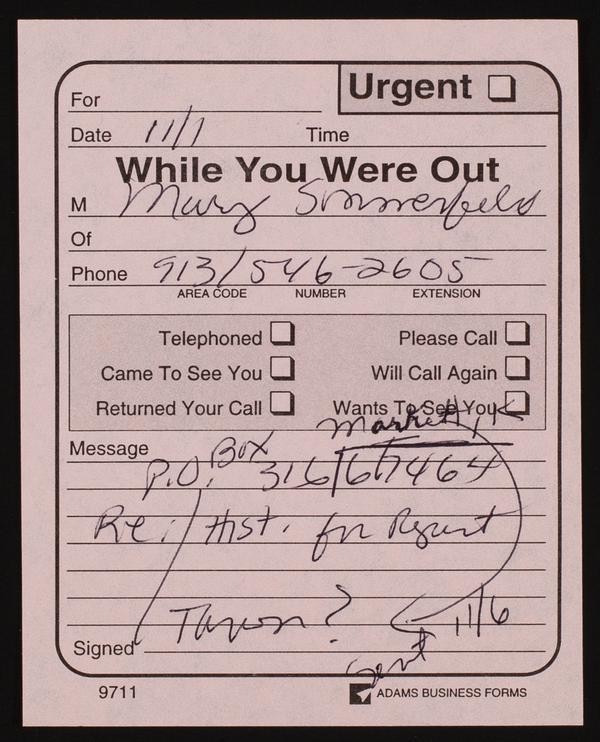 Urgent
For
Date 11/1 Time
While You Were Out
M Mary Sommerfeld
Of
Phone 913/546-2605
AREA CODE NUMBER EXTENSION
Telephoned Please Call
Came To See You Will Call Again
Returned Your Call Wants To See You
Markett, K
Message
P.O. Box 316/67464
Re: Hist. for
11/6
Signed
Sent
9711 ADAMS BUSINESS FORMS